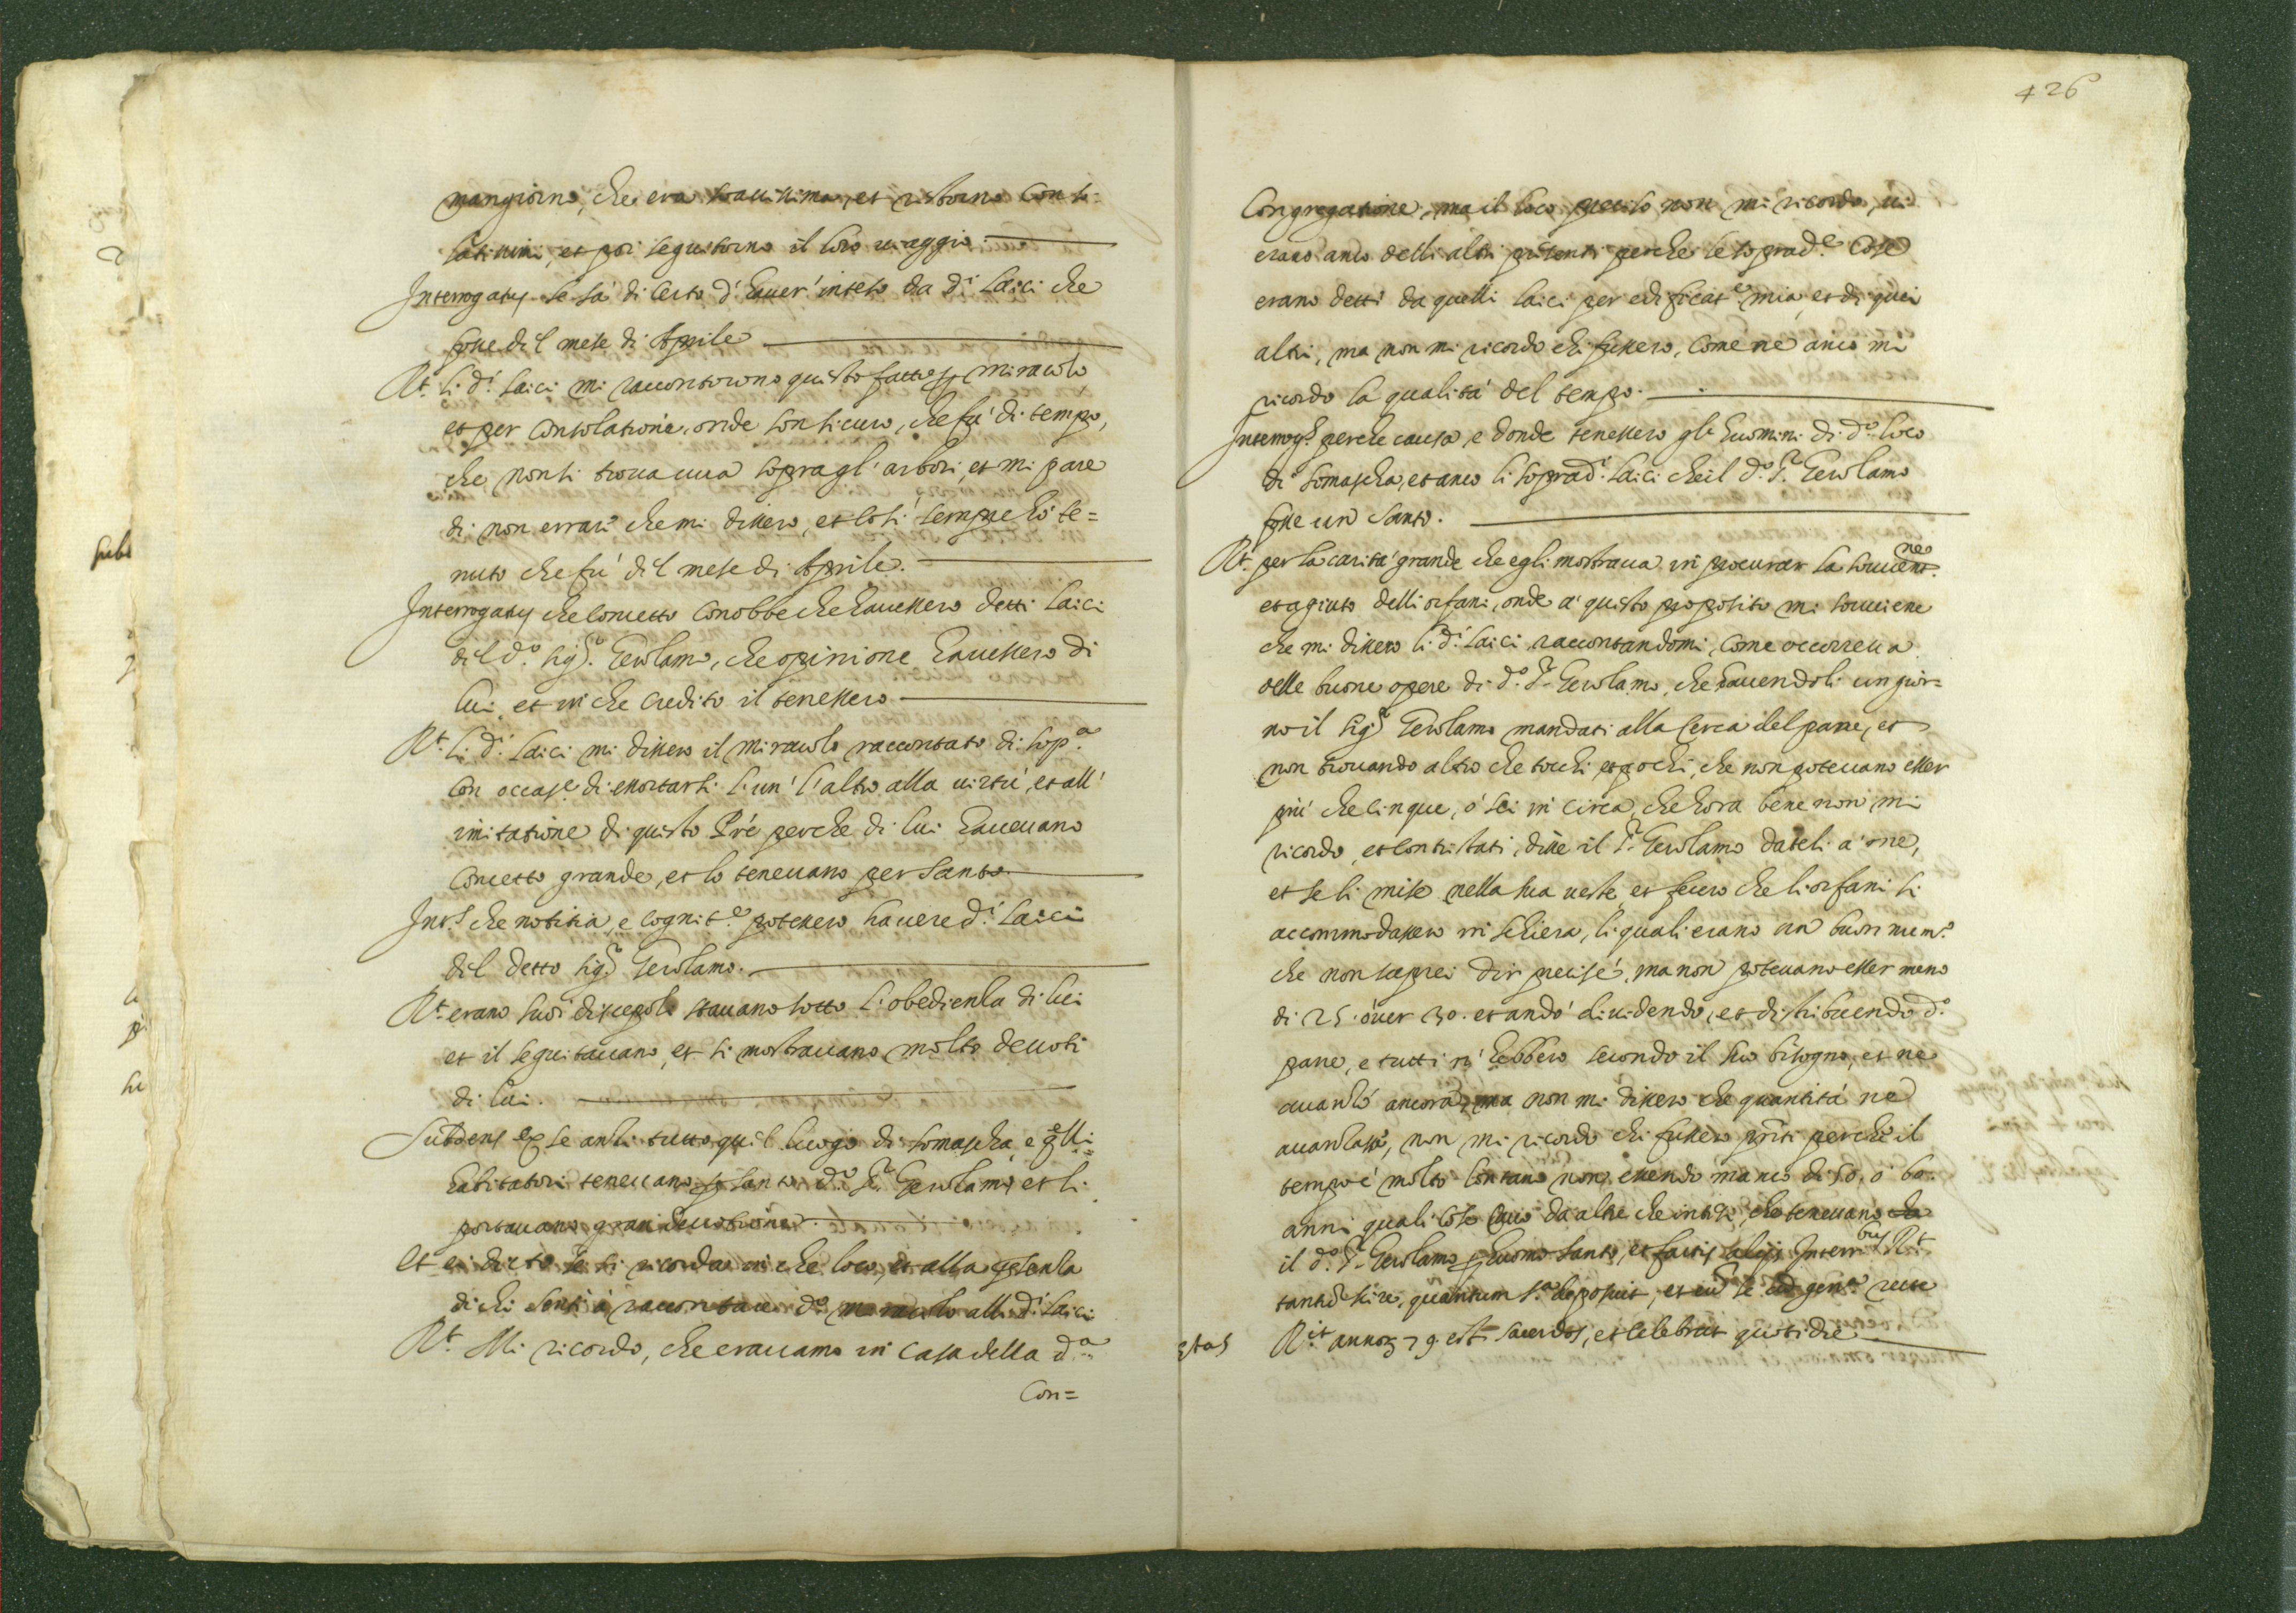 mangiorno, che era soauissima, et restorno conso=
latissimi, et poi seguitorno il loro uiaggio.
Interrogatus se sà di certo d'hauer' inteso da di laici che
fosse dil mese di Aprile
Rt. li di laici mi raccontorono questo fatto per miracolo
et per consolatione, onde son sicuro, che fù di tempo,
che non si trouaua sopra gl'arbori, et mi pare
di non errare che mi dissero, et così sempre hò te=
nuto che fù dil mese di Aprile.
Interrogatus che concetto conobbe che hauessero detti laici
dil do. sigr. Gerolamo, che opinione hauessero di
lui, et in che credito il tenessero
Rt. li di laici mi dissero il miracolo raccontato di sopa.
con occase. di essortarsi l'un' l'altro alla uirtù, et all'
imitatione di questo Pre perche di lui haueuano
concetto grande, et lo teneuano per santo.
Ints. che notitia, e cognite. potessero hauere di laici
del detto sigr. Gerolamo.
Rt. erano suoi discepoli stauano sotto l'obedienza di lui
et il seguitauano, et si mostrauano molto deuoti
di lui.
Subdens ex se anzi tutto quel luogo di Somascha, e qlli
habitatori teneuano per santo do. Pr. Gerolamo et li
portauano gran diuotione.
Et ei dicto se si ricorda in che loco, et alla presenza
di chi sentì à raccontare do. miracolo alli di laici
Rt. Mi ricordo, che erauamo in casa della da.
Con=
426
Congregatione, ma il loco preciso non mi ricordo, ui
erano anco delli altri presenti perche le soprade. cose
erano detti da quelli laici per edificate. mia, et di quei
altri, ma non mi ricordo chi fussero, come ne anco mi
ricordo la qualità del tempo.
Interrogs. perche causa, e donde tenessero gli huomini di do. loco
di Somascha, et anco li sopradi. laici che il do. Pr. Gerolamo
fosse un santo.
Rt. per la carità grande che egli mostraua in procurar la souuentne.
et agiuto delli orfani, onde a' questo proposito mi souuiene
che mi dissero li di laici raccontandomi, come occorreua
delle buone opere di do. Pr. Gerolamo, che hauendoli un gior=
no il sigr. Gerolamo mandati alla cerca del pane, et
non trouando altro che tocchi et pochi, che non poteuano esser
più che cinque, ò sei in circa, che hora bene non mi
ricordo, et contristati, disse il Pr. Gerolamo dateli a' me,
et se li mise nella sua ueste, et fecero che li orfani si
accommodassero in schiera, li quali erano un buon numo.
che non saprei dir precisé, ma non poteuano esser meno
di 25. òuer 30. et andò diuidendo, et distribuendo do.
pane, e tutti n' hebbero secondo il suo bisogno, et ne
auanzò ancora, ma non mi dissero che quantità ne
auanzasse, non mi ricordo chi fussero pnti perche il
tempo è molto lontano non essendo manco di 50. ò 60.
anni quali cose ... da altri che intesi, che teneuano
il do. Pr. Gerolamo per huomo santo, et factis alijs Interribus Rt.
tantum scire, quantum sa. deposuit, et ... gena. recte
etas Rit. annor. 79. est sacerdos, et celebrat quotidie